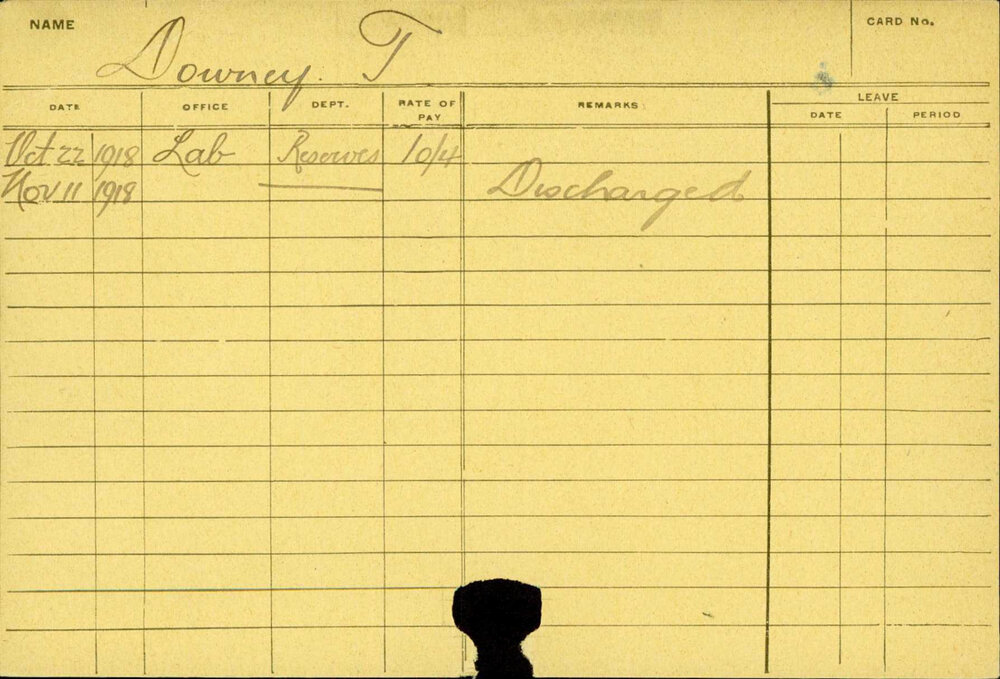 NAME Downey. T CARD No.
DATE OFFICE DEPT. RATE OF PAY REMARKS LEAVE
DATE PERIOD
Oct 22 1918 Lab Reserves 10/4
Nov 11 1918 Discharged